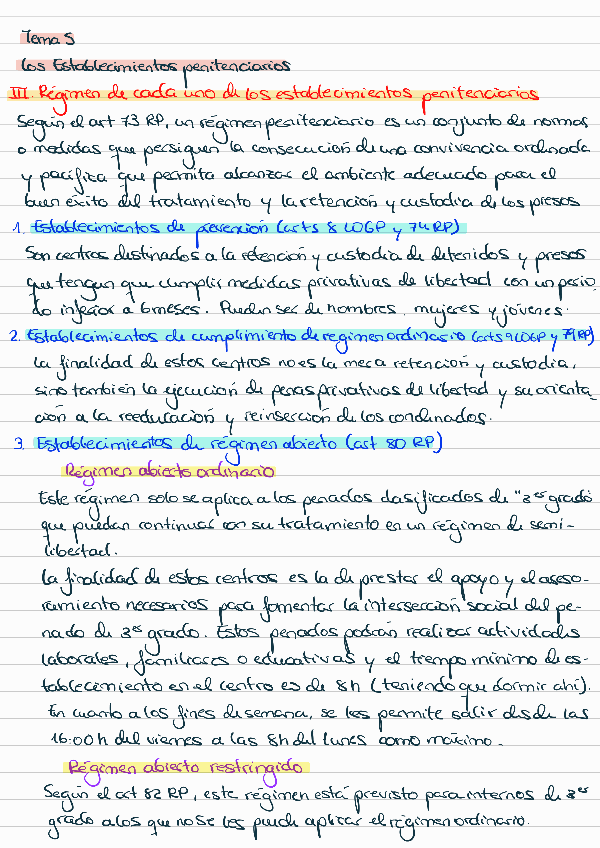 Tema 5
Los Establecimientos penitenciarios
III. Régimen de cada uno de los establecimientos penitenciarios
Según el art 73 RP, un régimen penitenciario es un conjunto de normas
o medidas que persiguen la consecución de una convivencia ordenada
y pacífica que permita alcanzar el ambiente adecuado para el
buen éxito del tratamiento y la retención y custodia de los presos
1. Establecimientos de prevención (arts 8 LOGP y 74 RP)
Son centros destinados a la retención y custodia de detenidos y presos
que tengan que cumplir medidas privativas de libertad con un perio
do inferior a 6 meses. Pueden ser de hombres, mujeres y jóvenes.
2. Establecimientos de cumplimiento de regimen ordinario (arts 9 LOGP y 74 RP)
La finalidad de estos centros no es la mera retención y custodia,
sino también la ejecución de penas privativas de libertad y su orienta
ción a la reeducación y reinserción de los condenados.
3. Establecimientos de régimen abierto (art 80 RP)
Régimen abierto ordinario
Este régimen solo se aplica a los penados clasificados de "3er grado
que puedan continuar con su tratamiento en un régimen de semi-
libertad.
La finalidad de estos centros es la de prestar el apoyo y el aseso-
ramiento necesarios para fomentar la interserción social del pe-
nado de 3er grado. Estos penados podrán realizar actividades
laborales, familiares o educativas y el tiempo mínimo de es-
tablecimiento en el centro es de 8h (teniendo que dormir ahí).
En cuanto a los fines de semana, se les permite salir desde las
16:00h del viernes a las 8h del lunes como máximo.
Régimen abierto restringido
Según el art 82 RP, este régimen está previsto para internos de 3er
grado a los que no se les puede aplicar el régimen ordinario.